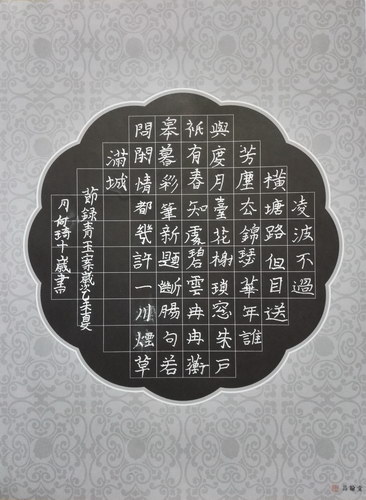 凌波不過
橫塘路但目送
芳塵去錦瑟華年誰
與度月臺花榭瑣窓朱戶
祇有春知處碧雲冉冉蘅
皋暮彩筆新題斷腸句若
問閑情都幾許一川煙草
滿城
節錄青玉案歲次乙未夏
月何琦十歲書